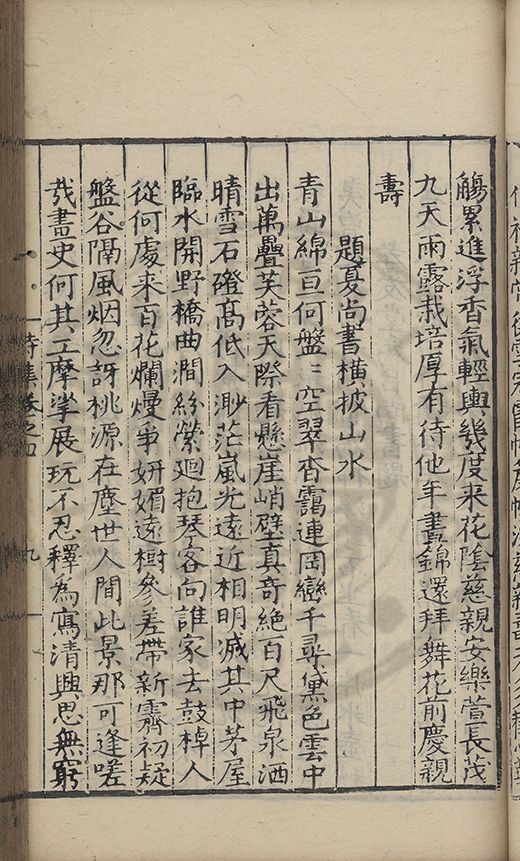 觴累進浮香氣輕輿幾度来花陰慈親安樂萱長茂
九天雨露栽培厚有待他年晝錦還拜舞花前慶親
壽
題夏尚書横披山水
青山綿亘何盤〻空翠杳靄連岡巒千尋黛色雲中
出萬疊芙蓉天際看懸崖峭壁真奇絶百尺飛泉洒
晴雪石磴髙低入渺茫嵐光遠近相明滅其中茅屋
臨水開野橋曲澗紆縈廻抱琴客向誰家去鼓棹人
從何處来百花爛熳爭妍媚遠樹參差帶新霽初疑
盤谷隔風烟忽訝桃源在塵世人間此景那可逢嗟
㢤畫史何其工摩挲展玩不忍釋為寫清興思無窮
詩集卷之四
九